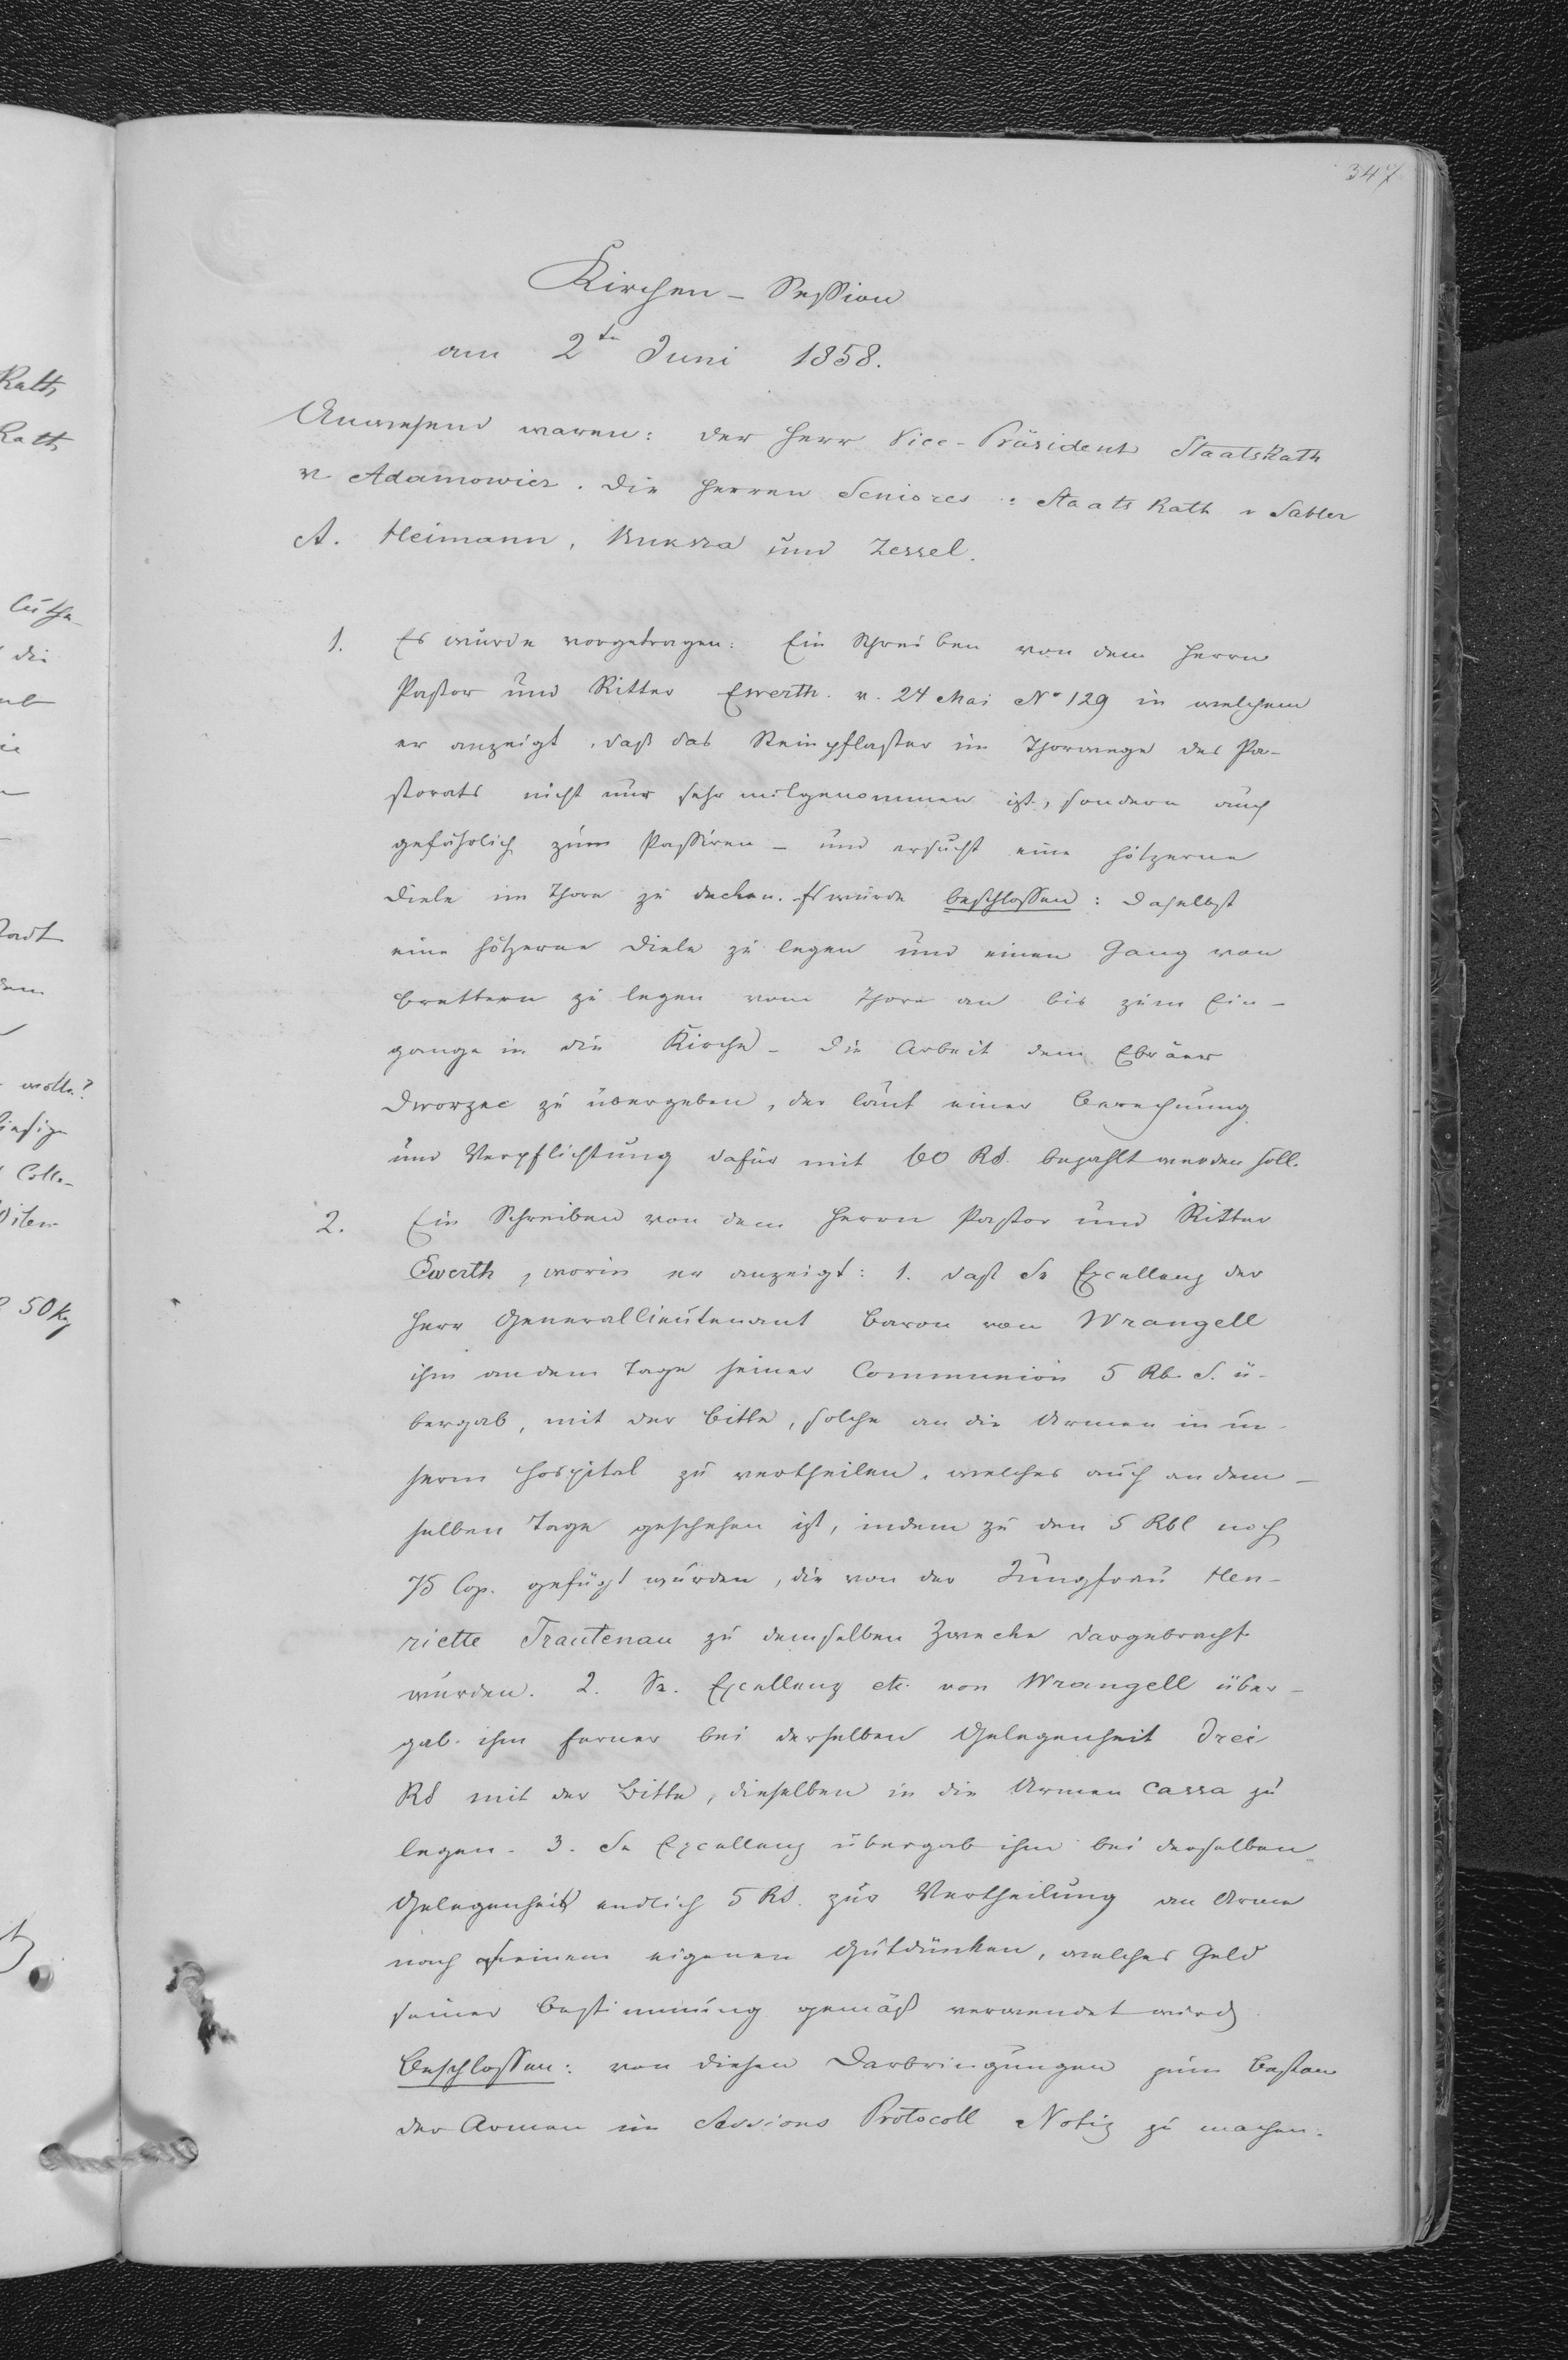 347
Kirchen-Session
am 2ten Juni 1858.
Anwesend waren: der Herr Vice-Präsident StaatsRath
v Adamowicz. Die Herren Seniores: Staats Rath v Sabler
A. Heimann, Bukssa und Zessel.
1. Es wurde vorgetragen: Ein Schreiben von dem Herrn
Pastor und Ritter Ewerth. v. 24 Mai No 129 in welchem
er anzeigt, daß das Steinpflaster im Thorwege des Pa-
storats nicht nur sehr mitgenommen ist, sondern auch
gefährlich zum Passiren - und ersucht eine hölzerne
Diele im Thore zu decken. Es wurde beschlossen: daselbst
eine hölzerne Diele zu legen und einen Gang von
Brettern zu legen vom Thore an bis zum Ein-
gange in die Kirche - die Arbeit dem Ebräer
Dworzec zu übergeben, der laut einer Berechnung
und Verpflichtung dafür mit 60 RS. bezahlt werden soll.
2. Ein Schreiben von dem Herrn Pastor und Ritter
Ewerth, worin er anzeigt: 1. daß Se Excellenz der
Herr Generallieutenant Baron von Wrangell
ihm an dem Tage seiner Communion 5 Rb. S. ü-
bergab, mit der Bitte, solche an die Armen in un-
serm Hospital zu vertheilen, welches auch an dem-
selben Tage geschehen ist, indem zu den 5 Rbl noch
75 Cop. gefügt wurden, die von der Jungfrau Hen-
riette Trautenau zu demselben Zwecke dargebracht
wurden. 2. Se. Excellenz etc. von Wrangell über-
gab ihm ferner bei derselben Gelegenheit drei
RS mit der Bitte, dieselben in die Armen Cassa zu
legen. 3. Se Excellenz übergab ihm bei derselben
Gelegenheit endlich 5 RS. zur Vertheilung an Arme
nach seinem eigenen Gutdünken, welches Geld
seiner Bestimmung gemäß verwendet wird.
Beschlossen: von diesen Darbringungen zum Besten
der Armen im Sessions Protocoll Notiz zu machen.
Rath
Rath
die
50 K